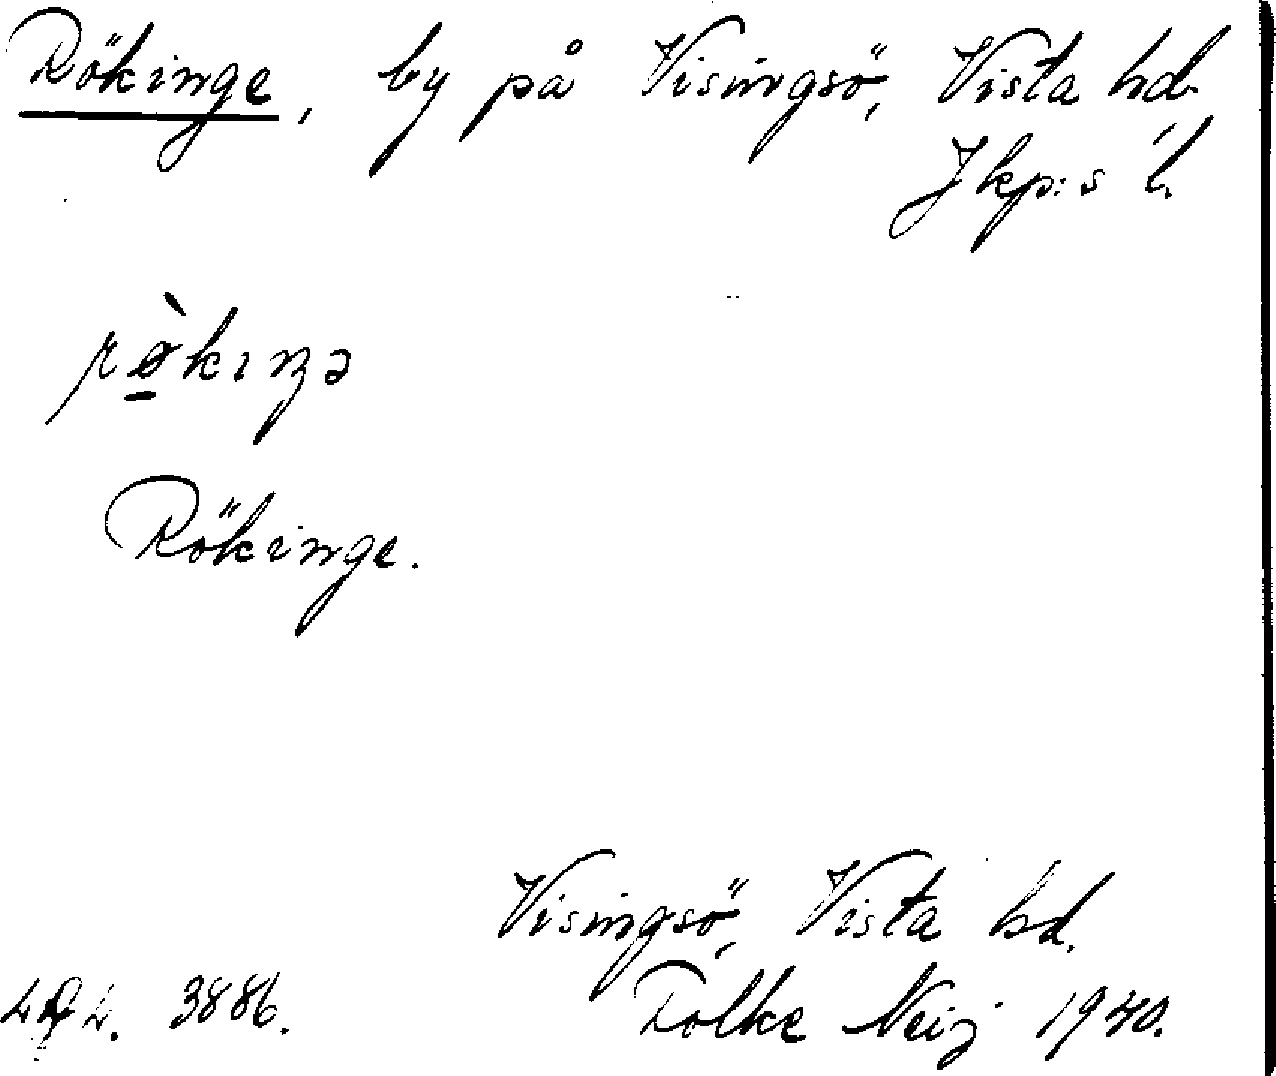 Rökinge, by på Visingsö, Vista hd.
Jkp:s l.
rø̠̀kıŋə
Rökinge.
Visingsö, Vista hd.
3886.
Folke Neij 1940.